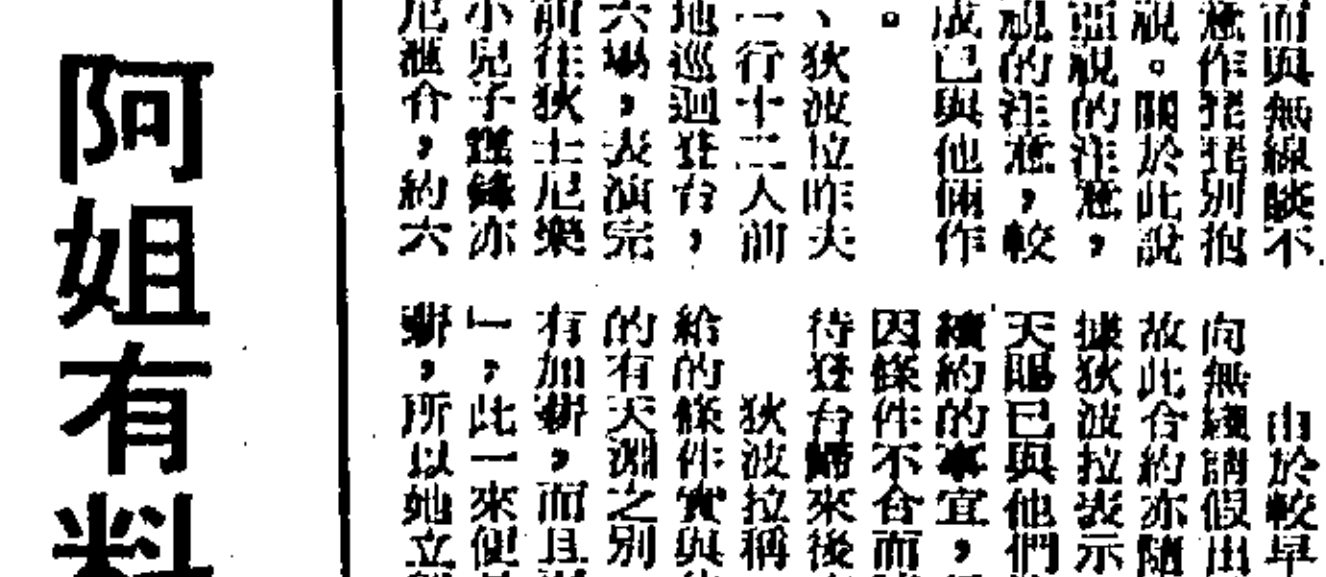 而與無線談不
意作琵琶別抱
視。關於此說
亞視的注意，
視的注意，較
成已與他倆作
。
、狄波拉昨天
一行十二人前
地巡迴登台，
六場，表演完
前往狄士尼樂
小兒子霆鋒亦
尼滙合，約六
由於較早
向無綫請假出
故此合約亦隨
據狄波拉表示
天賜已與他們
續約的事宜，
因條件不合而
待登台歸來後
狄波拉稱
給的條件實與
的有天淵之別
有加薪，而且
」，此一來便
薪，所以她立
阿姐有料